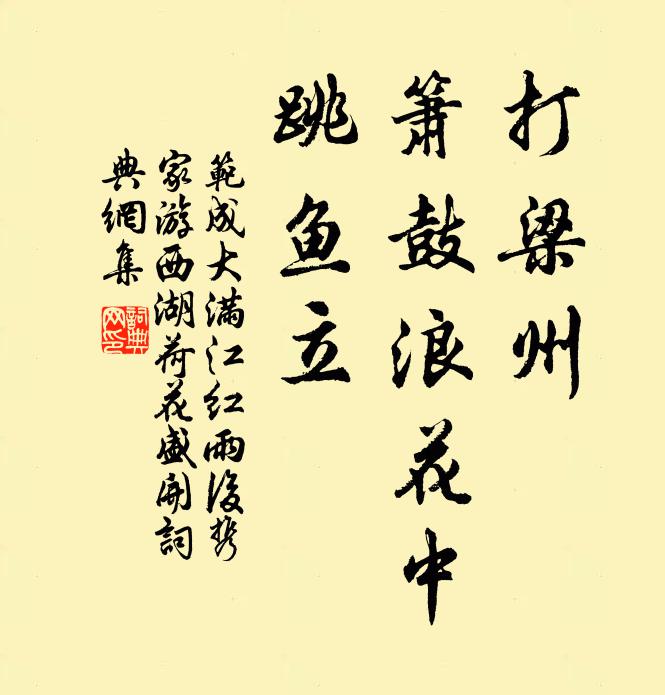 打梁州
箫鼓浪花中
跳鱼立
範成大满江红雨後携
家游西湖荷花盛開詞
典網集
詞典
网印